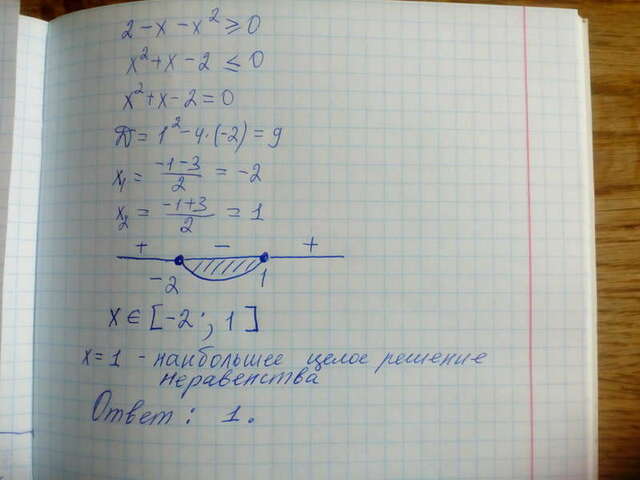 2 - x - x² ≥ 0
x² + x - 2 ≤ 0
x² + x - 2 = 0
D = 1² - 4·(-2) = 9
x₁ = (-1-3)/2 = -2
x₂ = (-1+3)/2 = 1
+ - +
-2 1
x ∈ [-2 ; 1]
x = 1 - наибольшее целое решение
неравенства
Ответ : 1.